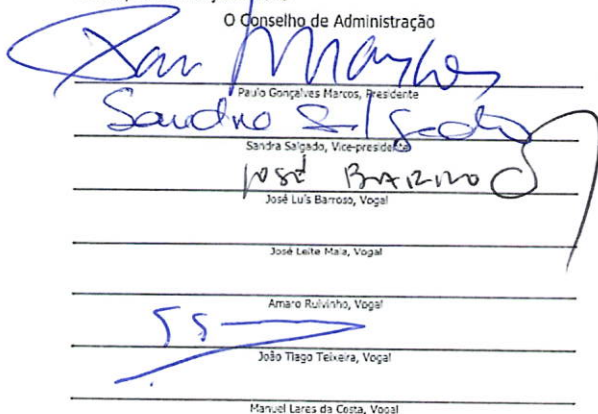 O Conselho de Administração
Paulo Gonçalves Marcos, Presidente
Sandra Salgado
Sandra Salgado, Vice-presidente
José Barroso
José Luís Barroso, Vogal
José Leite Maia, Vogal
Amaro Ruivinho, Vogal
João Tiago Teixeira, Vogal
Manuel Lares da Costa, Vogal